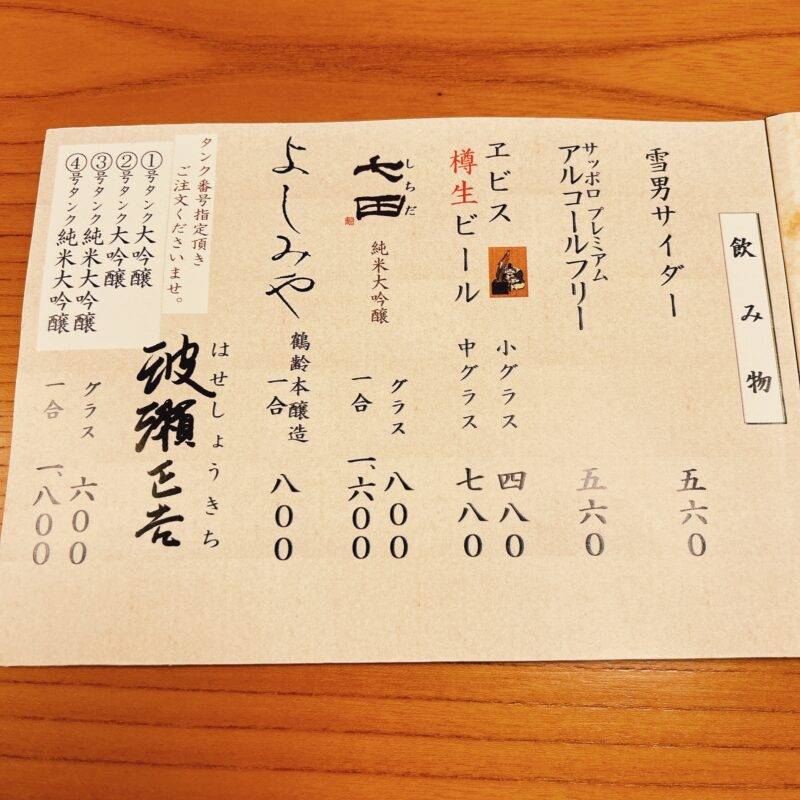 飲み物
雪男サイダー 五六〇
サッポロ プレミアム
アルコールフリー 五六〇
ヱビス 小グラス 四八〇
樽生ビール 中グラス 七八〇
しちだ
七田 純米大吟醸
グラス 八〇〇
一合 一、六〇〇
よしみや 鶴齢本醸造
一合 八〇〇
はせしょうきち
波瀬正吉
タンク番号指定頂き
ご注文くださいませ。
①号タンク大吟醸
②号タンク大吟醸
③号タンク純米大吟醸
④号タンク純米大吟醸
グラス 六〇〇
一合 一、八〇〇